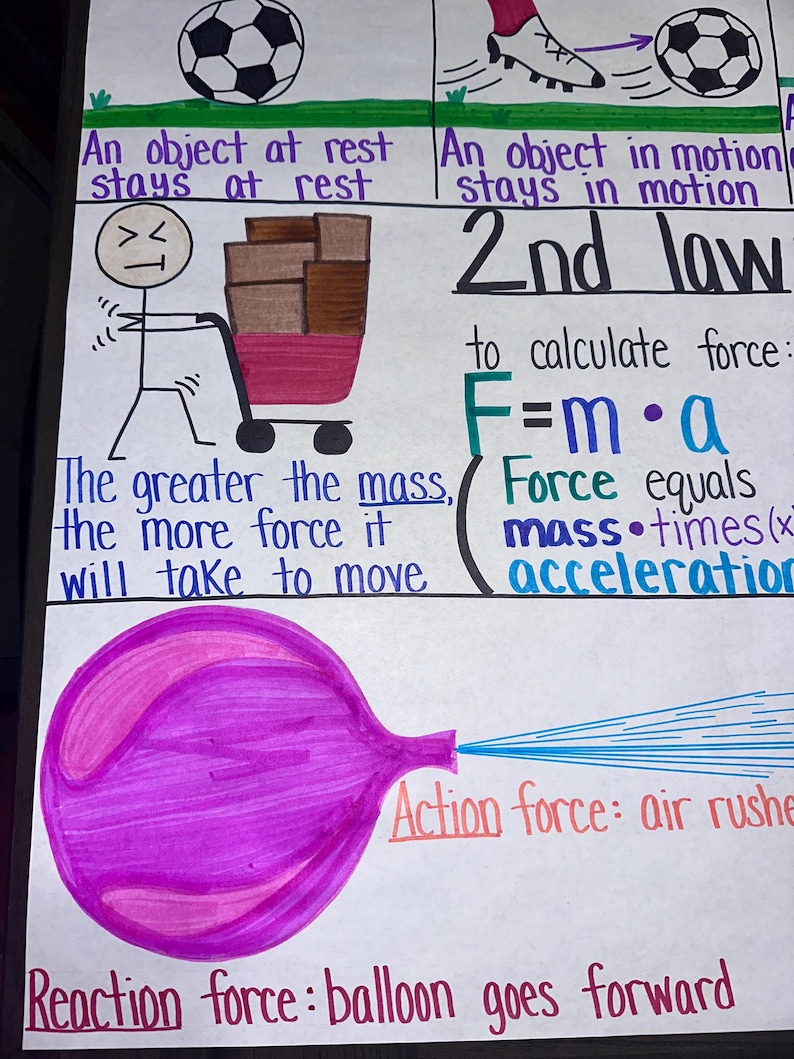 An object at rest
stays at rest
An object in motion
stays in motion
2nd law
to calculate force:
F=m•a
The greater the mass,
the more force it
will take to move
(Force equals
mass•times(x
acceleration
Action force: air rushe
Reaction force: balloon goes forward